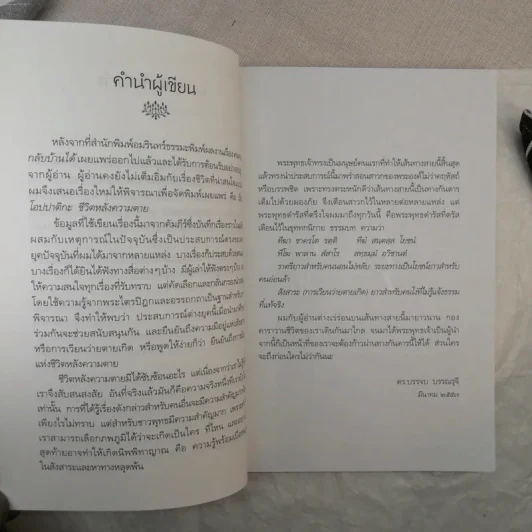 คำนำผู้เขียน
หลังจากที่สำนักพิมพ์อมรินทร์ธรรมะพิมพ์ผลงานเรื่อง
กลับบ้านได้ เผยแพร่ออกไปแล้วและได้รับการต้อนรับอย่าง
จากผู้อ่าน ผู้อ่านคงยังไม่เต็มอิ่มกับเรื่องชีวิตที่น่าสนใจ
ผมจึงเสนอเรื่องใหม่ให้พิจารณาเพื่อจัดพิมพ์เผยแพร่ คือ
โอปปาติกะ ชีวิตหลังความตาย
ข้อมูลที่ใช้เขียนเรื่องนี้มาจากคัมภีร์ซึ่งบันทึกเรื่องราว
ผสมกับเหตุการณ์ในปัจจุบันซึ่งเป็นประสบการณ์ตรงของ
ยุคปัจจุบันที่ผมได้มาจากหลายแหล่ง บางเรื่องก็ประสบด้วย
บางเรื่องก็ได้ยินได้ฟังทางสื่อต่างๆ บ้าง มีผู้เล่าให้ฟังตรงๆ
ให้ความสนใจทุกเรื่องที่รับทราบ แต่คัดเลือกและกลั่นกรอง
โดยใช้ความรู้จากพระไตรปิฎกและอรรถกถาเป็นฐานสำหรับ
พิจารณา จึงทำให้พบว่า ประสบการณ์ต่างยุคนี้เมื่อนำมา
ร่วมกันจะช่วยสนับสนุนกัน และยืนยันถึงความมีอยู่แห่ง
การเวียนว่ายตายเกิด หรือพูดให้ง่ายก็ว่า ยืนยันถึงการ
แห่งชีวิตหลังความตาย
ชีวิตหลังความตายมิได้ซับซ้อนอะไร แต่เนื่องจากเรา
เราจึงสับสนสงสัย อันที่จริงแล้วมันก็คือความจริงหนึ่งที่
เท่านั้น การที่ได้รู้เรื่องดังกล่าวสำหรับคนอื่นจะมีความสำคัญ
เพียงไรไม่ทราบ แต่สำหรับชาวพุทธมีความสำคัญมาก เพราะ
เราสามารถเลือกภพภูมิได้ว่าจะเกิดเป็นใคร ที่ไหน และ
สุดท้ายอาจทำให้เกิดนิพพิทาญาณ คือ ความรู้พร้อมเบื่อหน่าย
ในสังสาระและหาทางหลุดพ้น
พระพุทธเจ้าทรงเป็นมนุษย์คนแรกที่ทำให้เส้นทางสายนี้สิ้นสุด
แล้วทรงนำประสบการณ์นี้มาพร่ำสอนสาวกของพระองค์ไม่ว่าคฤหัสถ์
หรือบรรพชิต เพราะทรงตระหนักดีว่าเส้นทางสายนี้เป็นทางกันดาร
เต็มไปด้วยผองภัย จึงเตือนสาวกไว้ในหลายต่อหลายแห่ง แต่
พระพุทธดำรัสที่ตรึงใจผมมาถึงทุกวันนี้ คือพระพุทธดำรัสที่ตรัส
เตือนไว้ในขุททกนิกาย ธรรมบท ความว่า
ทีฆา ชาครโต รตฺติ ทีฆํ สนฺตสฺส โยชนํ
ทีโฆ พาลาน สํสาโร สทฺธมฺมํ อวิชานตํ
ราตรียาวสำหรับคนนอนไม่หลับ ระยะทางเป็นโยชน์ยาวสำหรับ
คนอ่อนล้า
สังสาระ (การเวียนว่ายตายเกิด) ยาวสำหรับคนโง่ที่ไม่รู้แจ้งธรรม
ที่แท้จริง
ผมกับผู้อ่านต่างเร่ร่อนบนเส้นทางสายนี้มายาวนาน กอง
คาราวานชีวิตของเราเดินกันมาไกล จนมาได้พระพุทธเจ้าเป็นผู้นำ
จากนี้ก็เป็นหน้าที่ของเราจะต้องก้าวผ่านทางกันดารนี้ให้ได้ ส่วนใคร
จะถึงก่อนใครไม่ว่ากันนะ
ดร.บรรจบ บรรณรุจิ
มีนาคม ๒๕๕๗